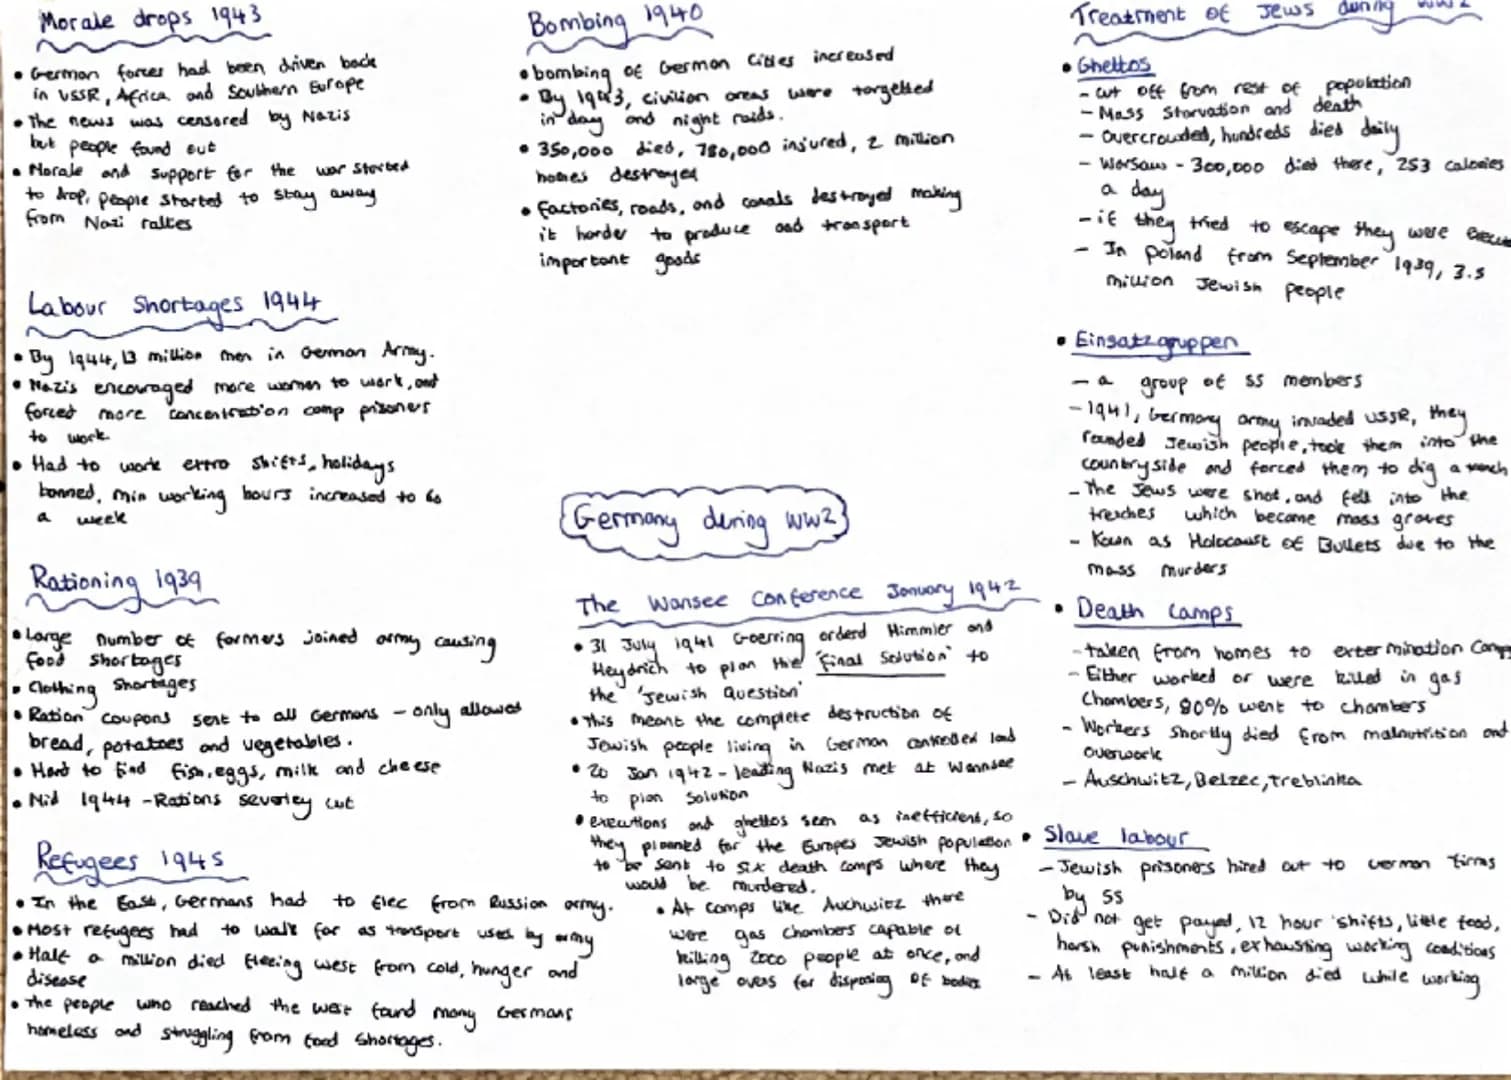 Morale drops 1943
• German forces had been driven back
in USSR, Africa and Southern Europe
• The news was censored by Nazis
but people found out
• Morale and support for the war started
to drop, people started to stay away
from Nazi rallies
Labour Shortages 1944
• By 1944, 13 million men in German Army.
• Nazis encouraged more women to work, and
forced more concentration camp prisoners
to work
• Had to work extra shifts, holidays
banned, min working hours increased to 60
a week
Rationing 1939
• Large number of farmers joined army causing
food shortages
• Clothing Shortages
• Ration coupons sent to all Germans - only allowed
bread, potatoes and vegetables.
• Hard to find fish, eggs, milk and cheese
• Mid 1944 - Rations severley cut
Refugees 1945
• In the East, Germans had to flee from Russian army.
• Most refugees had to walk far as transport used by army
• Half a million died fleeing west from cold, hunger and
disease
• The people who reached the west found many Germans
homeless and struggling from food shortages.
Bombing 1940
• bombing of German Cities increased
• By 1943, civilian areas were targetted
in day and night raids.
• 350,000 died, 780,000 injured, 2 million
homes destroyed
• Factories, roads, and canals destroyed making
it harder to produce and transport
important goods
Germany during WW2
The Wansee Conference January 1942
• 31 July 1941 Goerring orderd Himmler and
Heydrich to plan the 'Final Solution' to
the 'Jewish Question'
• This meant the complete destruction of
Jewish people living in German controlled land
• 20 Jan 1942 - leading Nazis met at Wannsee
to plan Solution
• executions and ghettos seen as inefficient, so
they planned for the Europes Jewish population
to be sent to six death camps where they
would be murdered.
• At camps like Auchwitz there
were gas chambers capable of
killing 2000 people at once, and
large ovens for disposing of bodies
Treatment of Jews during WW2
• Ghettos
- cut off from rest of population
- Mass Starvation and death
- overcrowded, hundreds died daily
- Warsaw - 300,000 died there, 253 calories
a day
- if they tried to escape they were
- In Poland from September 1939, 3.5
million Jewish people
• Einsatzgruppen
- a group of SS members
- 1941, Germany army invaded USSR, they
rounded Jewish people, took them into the
countryside and forced them to dig a trench
- The Jews were shot, and fell into the
treches which became mass graves
- Kown as Holocaust of Bullets due to the
mass murders
• Death Camps
- taken from homes to extermination Camps
- Either worked or were killed in gas
Chambers, 80% went to chambers
- Workers shortly died from malnutrition and
overwork
- Auschwitz, Belzec, Treblinka
• Slave labour
- Jewish prisoners hired out to German firms
by SS
- Did not get payed, 12 hour shifts, little food,
harsh punishments, exhausting working conditions
- At least half a million died while working